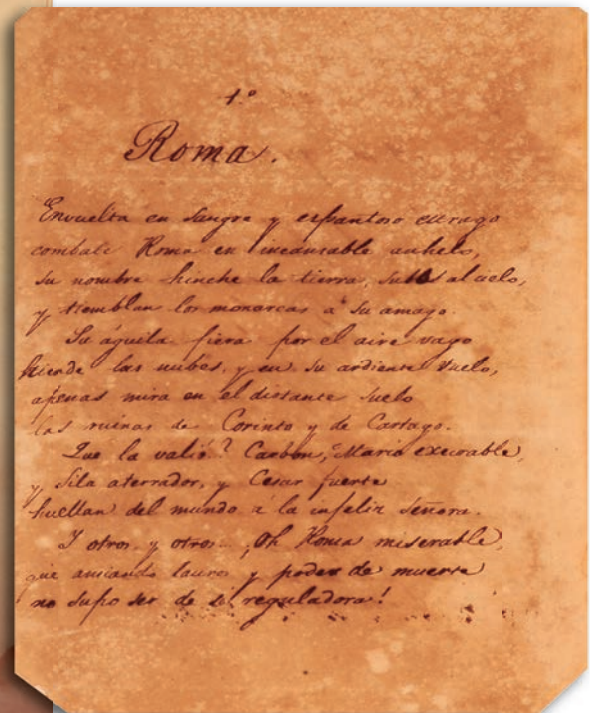 1.º
Roma.
Envuelta en sangre y espantoso estrago
combate Roma en incansable anhelo,
su nombre hinche la tierra, sube al cielo,
y tiemblan los monarcas á su amago.
Su águila fiera por el aire vago
hiende las nubes, y en su ardiente vuelo,
apenas mira en el distante suelo
las ruinas de Corinto y de Cartago.
Qué la valió? Carbon, Mario execrable,
y Sila aterrador, y Cesar fuerte
huellan del mundo á la infeliz señora.
Y otros y otros... ¡Oh Roma miserable,
que ansiando lauros y poder de muerte
no supo ser de sí reguladora!